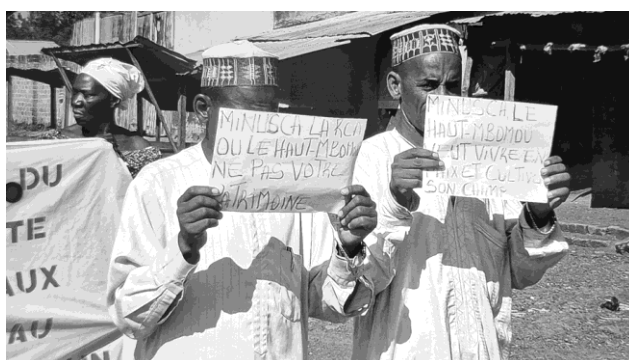 DU
TE
AUX
AU
MINUSCA LA RCA
OU LE HAUT-MBOMOU
NE PAS VOTRE
PATRIMOINE
MINUSCA LE
HAUT-MBOMOU
VEUT VIVRE EN
PAIX ET CULTIVE
SON CHAMP